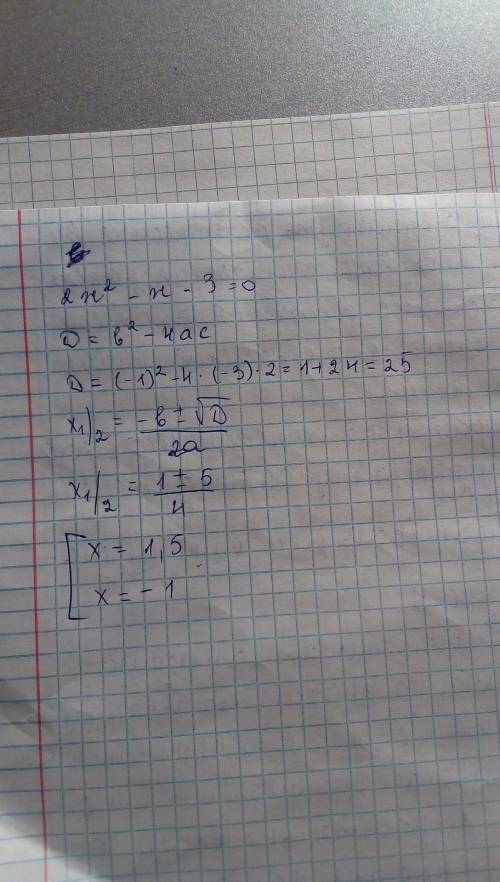 2x² - x - 3 = 0
D = b² - 4ac
D = (-1)² - 4 · (-3) · 2 = 1 + 24 = 25
x₁/₂ = (-b ± √D)/2a
x₁/₂ = (1 ± 5)/4
[ x = 1,5
x = -1